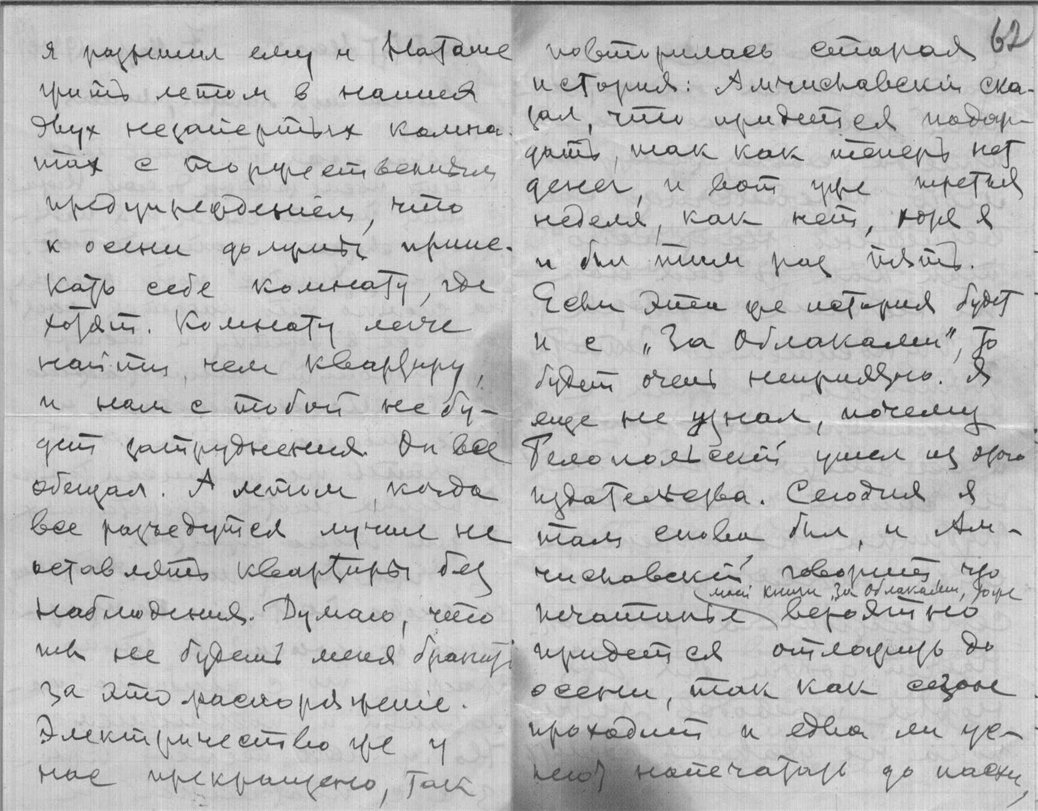 я разрешил ему и Наташе
жить летом в наших
двух незапертых комна-
тах с торжественным
предупреждением, что
к осени должны приис-
кать себе комнату, где
хотят. Комнату легче
найти, чем квартиру,
и нам с тобой не бу-
дет затруднения. Он все
обещал. А летом, когда
все разъедутся лучше не
оставлять квартиры без
наблюдения. Думаю, что
ты не будешь меня бранить
за это распоряжение.
Электричество уже у
нас прекращено, так
62
повторилась старая
история: Амчиславский ска-
зал, что придется подож-
дать, так как теперь нет
денег, и вот уже третья
неделя, как нет, хотя я
и был там раз пять.
Если эта же история будет
и с „За Облаками", то
будет очень неприятно. Я
еще не узнал, почему
ушел из этого
издательства. Сегодня я
там снова был, и Ам-
числавский говорит, что
печатанье моей книги За Облаками, тоже вероятно
придется отложить до
осени, так как сезон
проходит и едва ли ус-
пеют напечатать до пасхи,